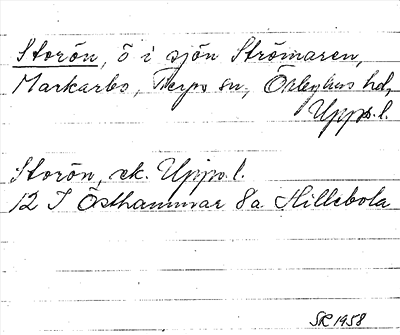 Storön, ö i sjön Strömaren,
Markarbo, Tierps sn, Örbyhus hd,
Upps. l.
Storön, ek. Upps. l.
12 I Östhammar 8a Hillebola
SR 1958